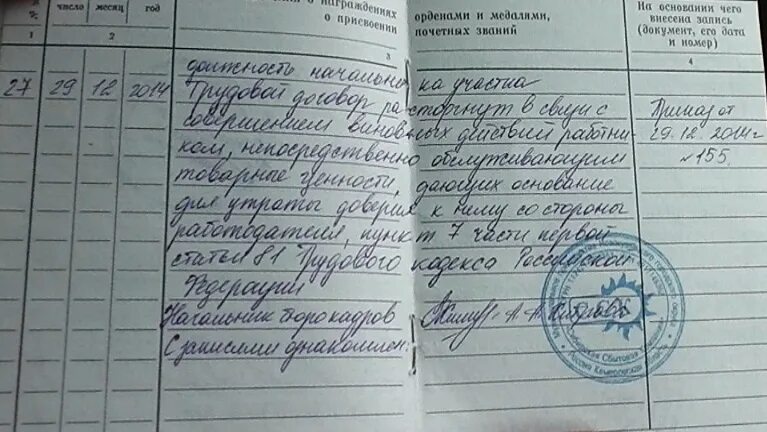 о награждениях
о присвоении
орденами и медалями,
почетных званий
На основании чего
внесена запись
(документ, его дата
и номер)
число месяц год
1 2 3 4
должность начальника участка
27 29 12 2014 Трудовой договор расторгнут в связи с
Приказ от
совершением виновных действий работни-
29.12.2014г
ком, непосредственно обслуживающим
№155.
товарные ценности, дающих основание
для утраты доверия к нему со стороны
работодателя, пункт 7 части первой
статьи 81 Трудового кодекса Российской
Федерации
Начальник бюро кадров
С записями ознакомлен: